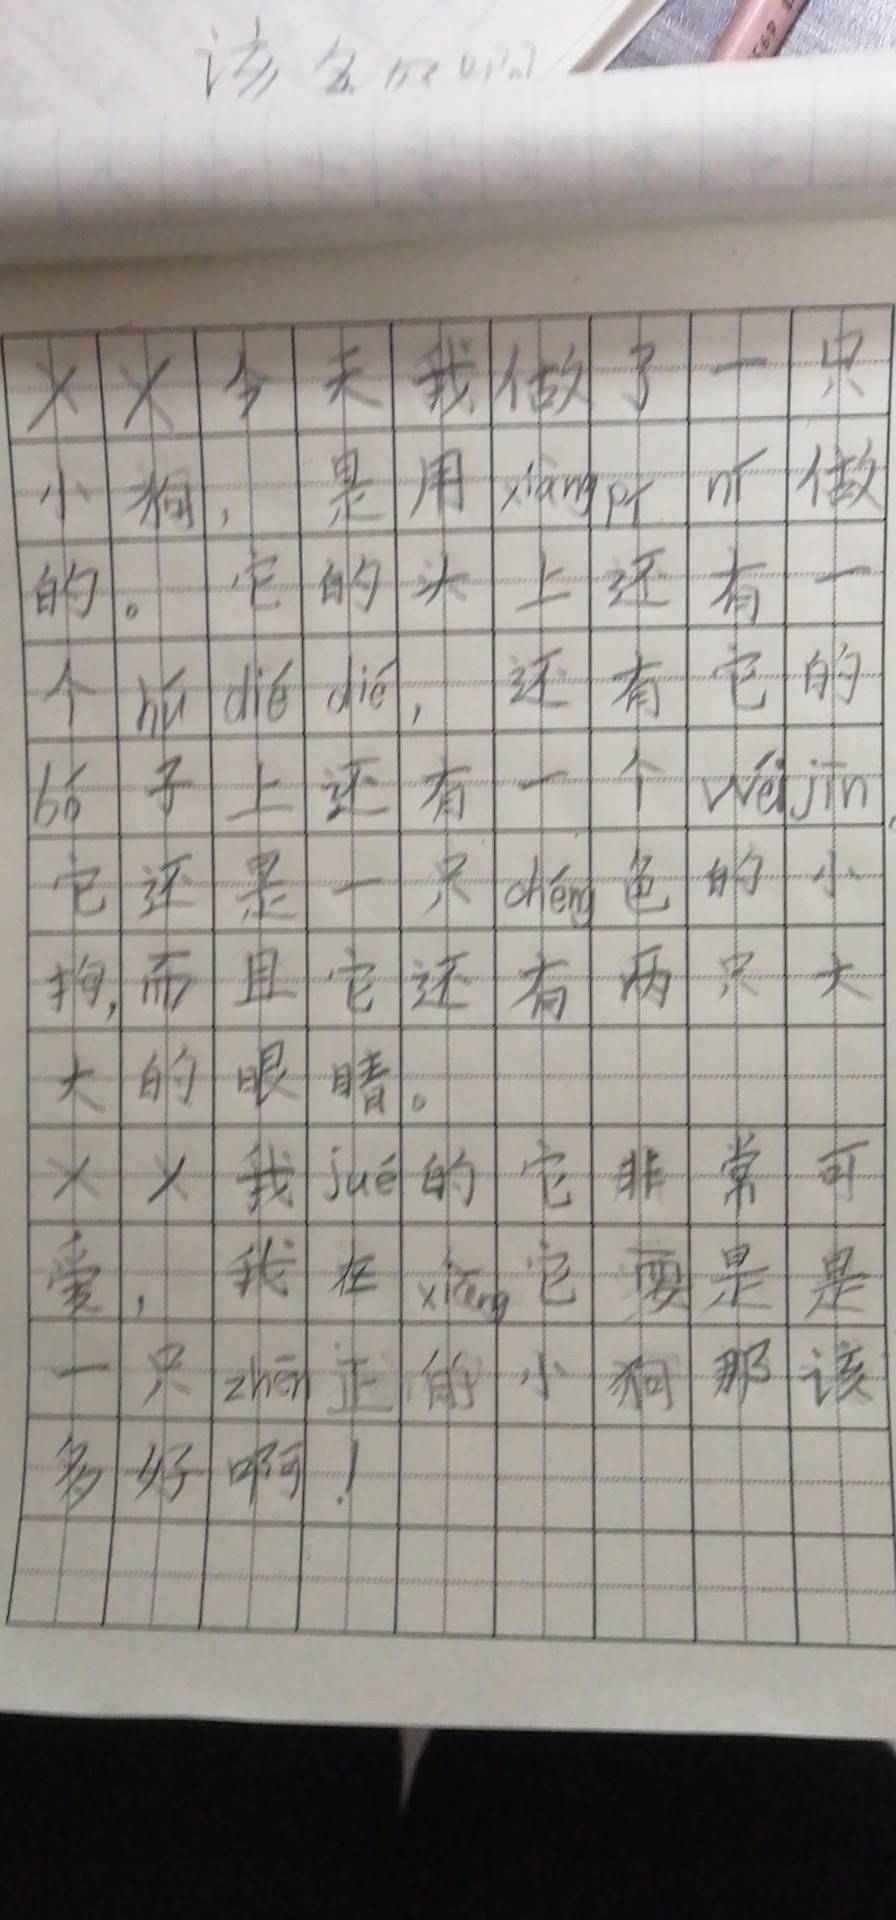 该多好啊
××今天我做了一只
小狗，是用xiàng pí ní做
的。它的头上还有一
个hú dié dié，还有它的
bó子上还有一个wéi jīn，
它还是一只chéng色的小
狗，而且它还有两只大
大的眼睛。
××我jué的它非常可
爱，我在xiǎng它要是是
一只zhēn正的小狗那该
多好啊！